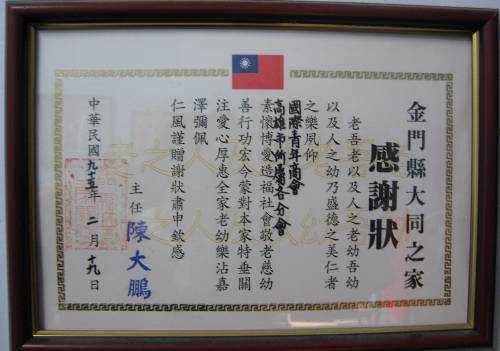 金門縣大同之家
感謝狀
老吾老以及人之老幼吾幼
以及人之幼乃盛德之美仁者
之樂夙仰
國際青年商會
高雄市附屬各分會
素懷博愛造福社會敬老慈幼
善行功宏今蒙對本家特垂關
注愛心厚惠全家老幼樂沾嘉
澤彌佩
仁風謹贈謝狀肅申欽感
主任 陳大鵬
中華民國九十五年二月十九日